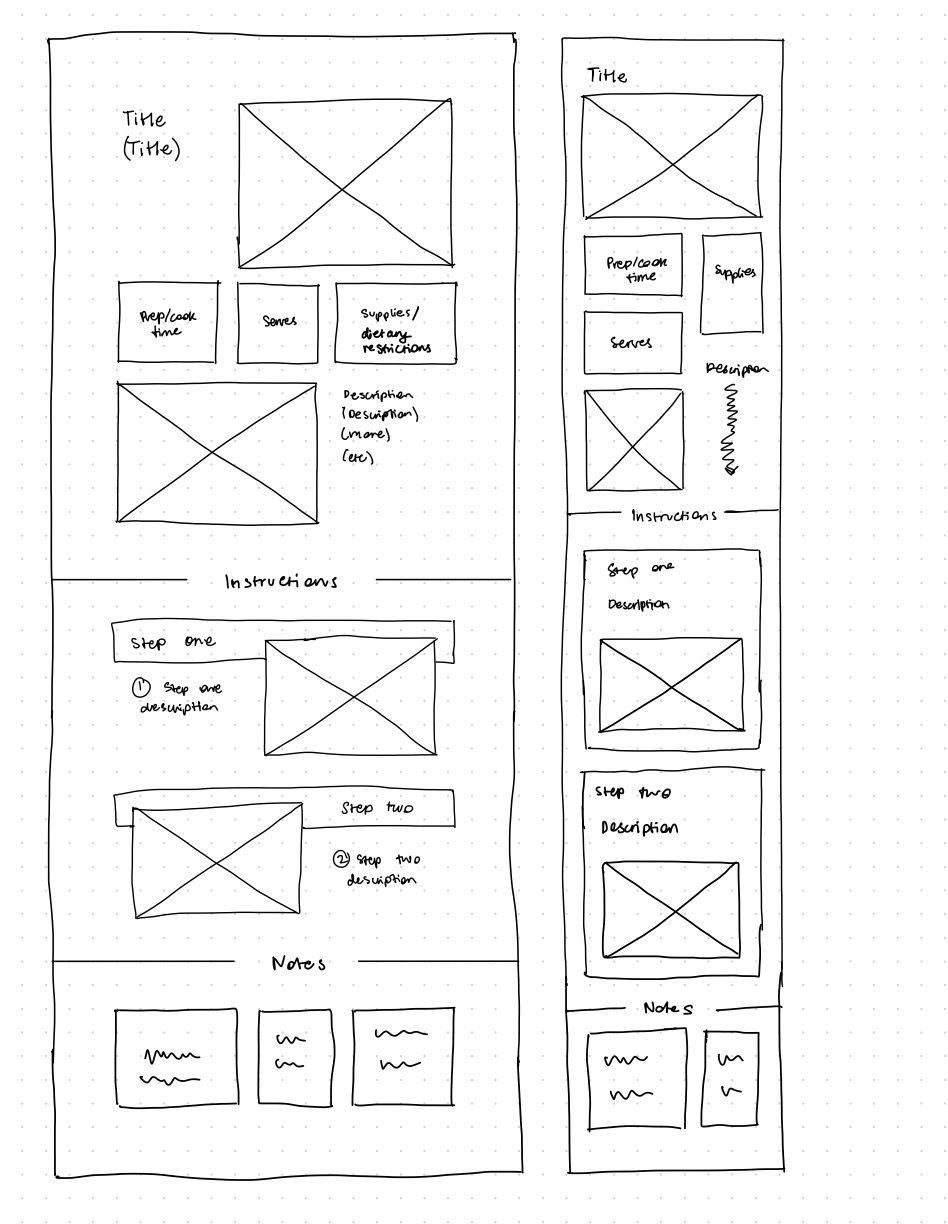 Title
(Title)
Prep/cook
time
Serves
Supplies/
dietary
restrictions
Description
(Description)
(more)
(etc)
Instructions
Step one
1 Step one
description
Step two
2 Step two
description
Notes
Title
Prep/cook
time
Supplies
Serves
Description
Instructions
Step one
Description
Step two
Description
Notes